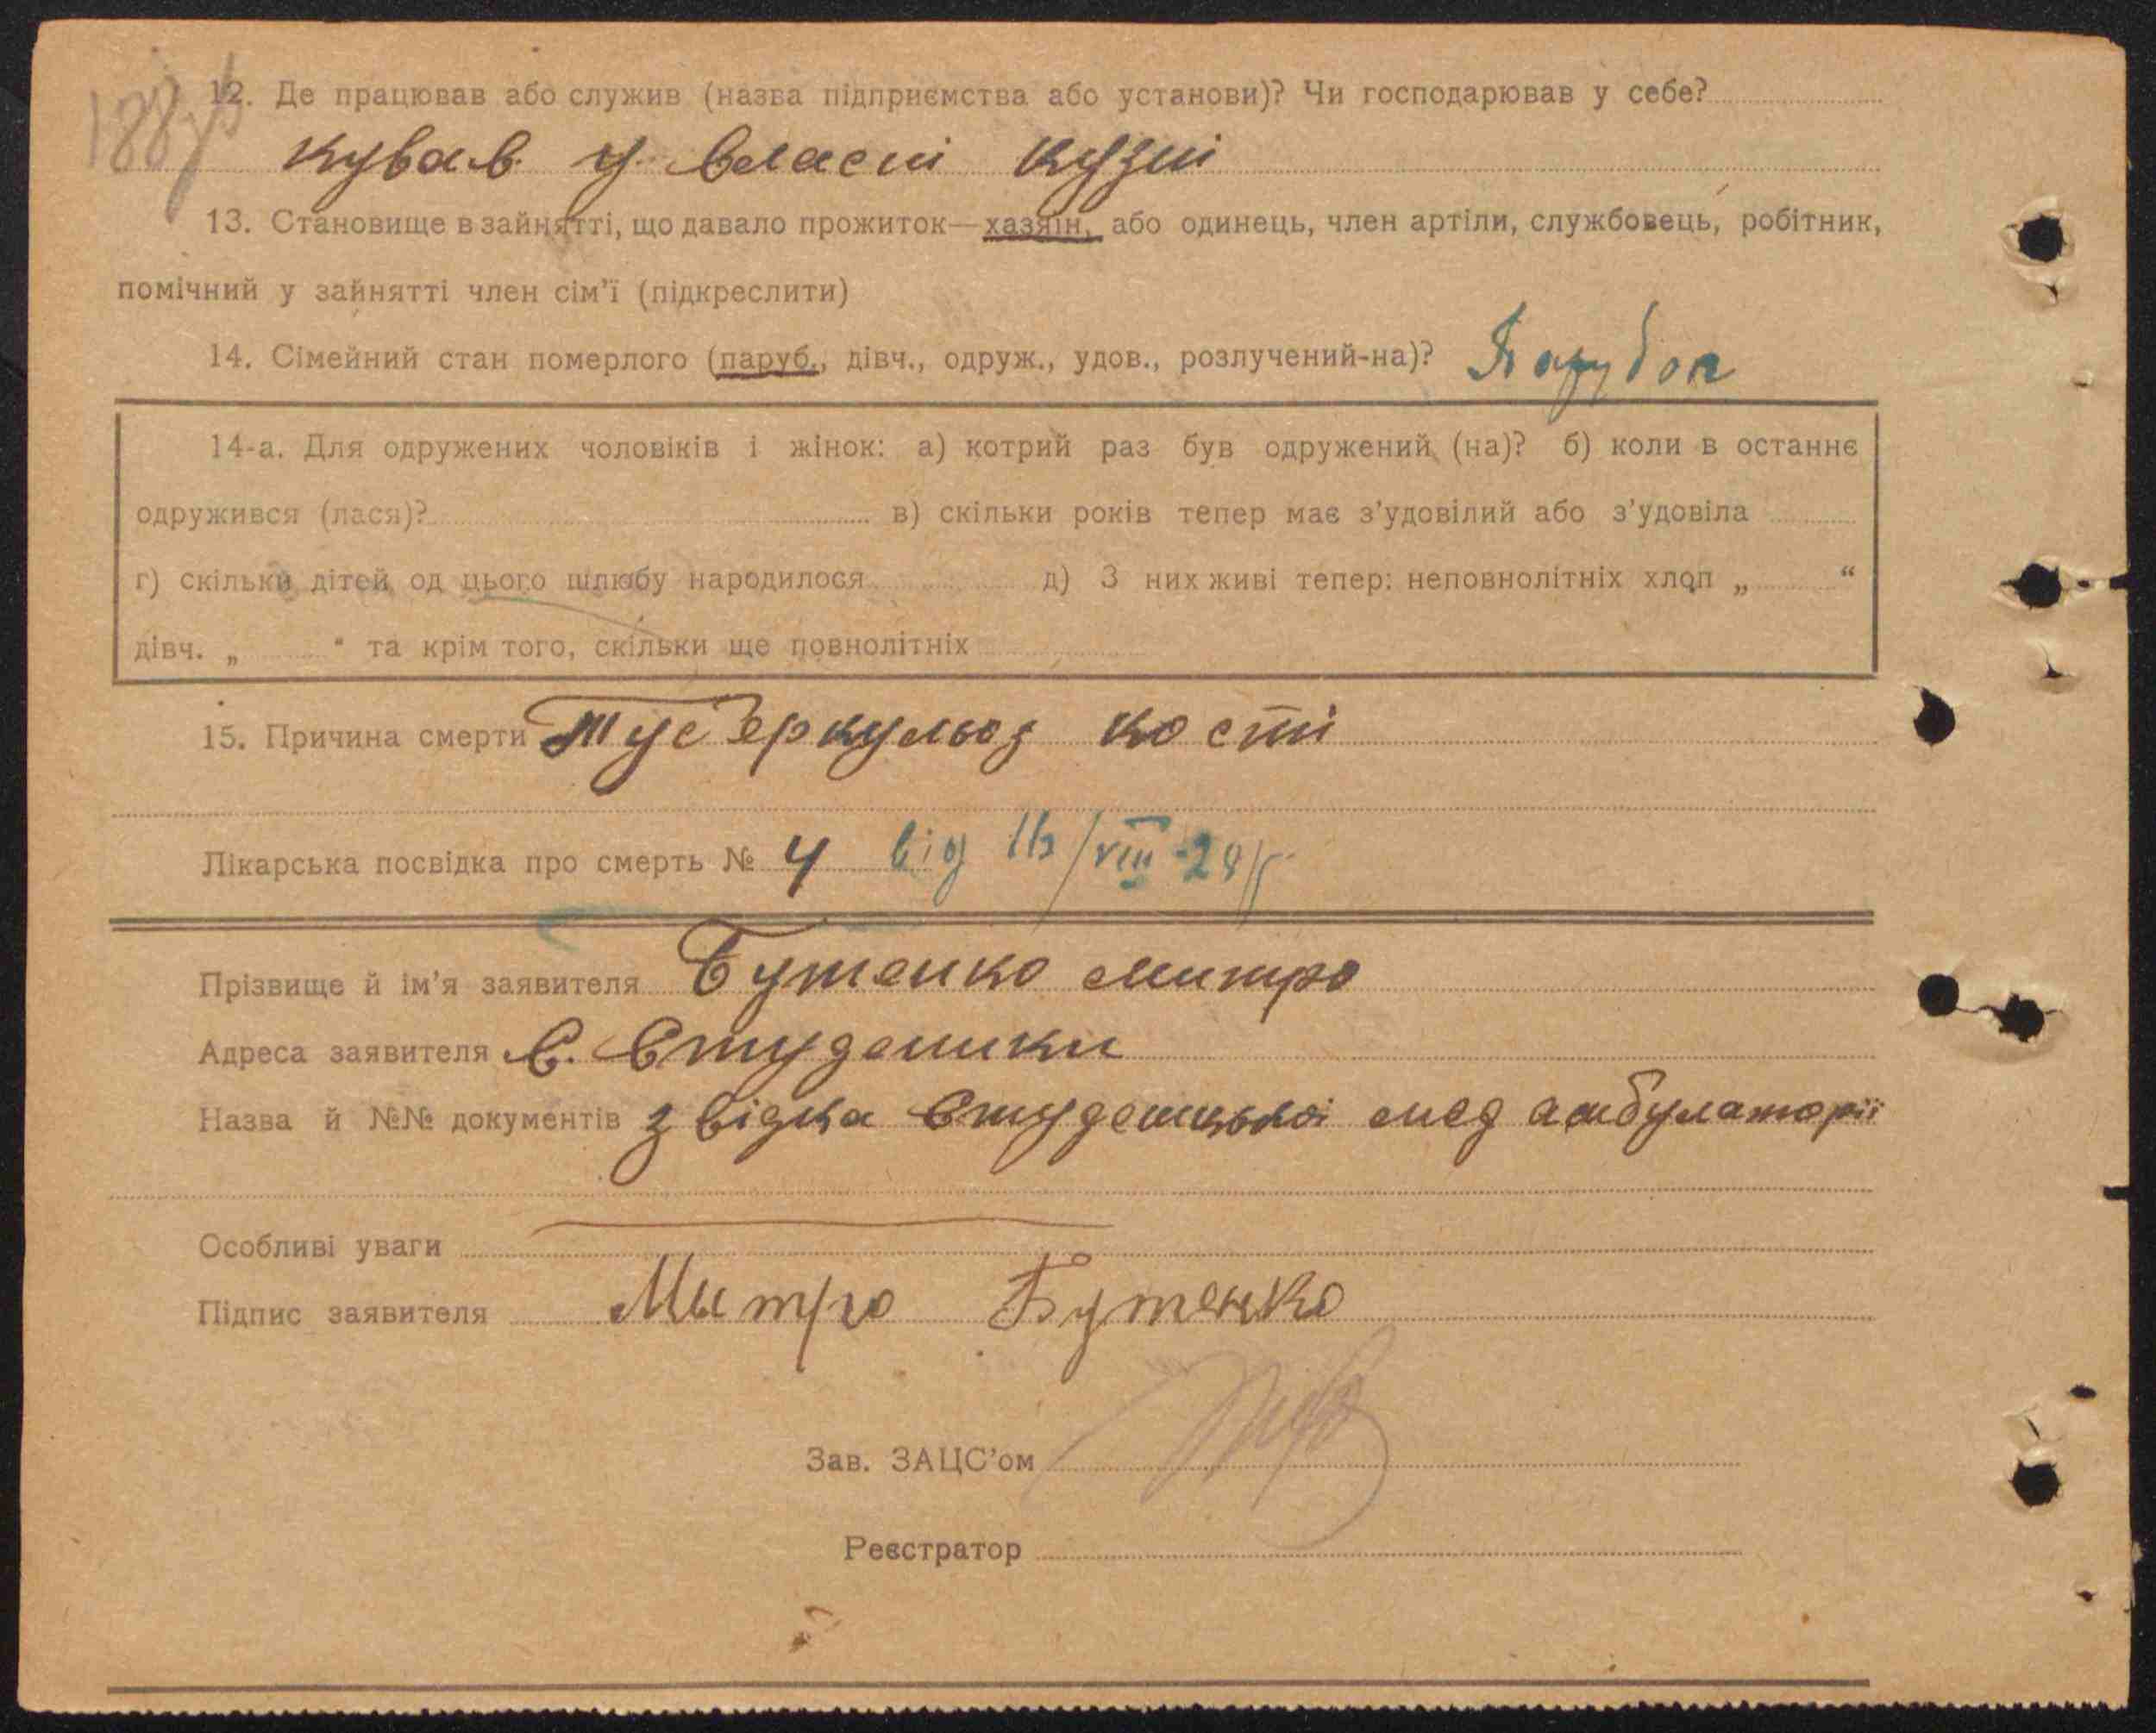 12. Де працював або служив (назва підприємства або установи)? Чи господарював у себе?
кував у власні кузні
13. Становище в зайнятті, що давало прожиток—хазяїн, або одинець, член артіли, службовець, робітник,
помічний у зайнятті член сім'ї (підкреслити)
14. Сімейний стан померлого (паруб., дівч., одруж., удов., розлучений-на)? Парубок
14-а. Для одружених чоловіків і жінок: а) котрий раз був одружений (на)? б) коли в останнє
одружився (лася)? в) скільки років тепер має з'удовілий або з'удовіла
г) скільки дітей од цього шлюбу народилося д) З них живі тепер: неповнолітніх хлоп „ “
дівч. „ “ та крім того, скільки ще повнолітніх
15. Причина смерти Туберкульоз кости
Лікарська посвідка про смерть № 4 від 16/VIII-29р
Прізвище й ім'я заявителя Бутенко Митро
Адреса заявителя С. Студеники
Назва й №№ документів звідка Студеницької мед амбулаторії
Особливі уваги
Підпис заявителя Мытро Бутенко
Зав. ЗАЦС'ом
Реєстратор